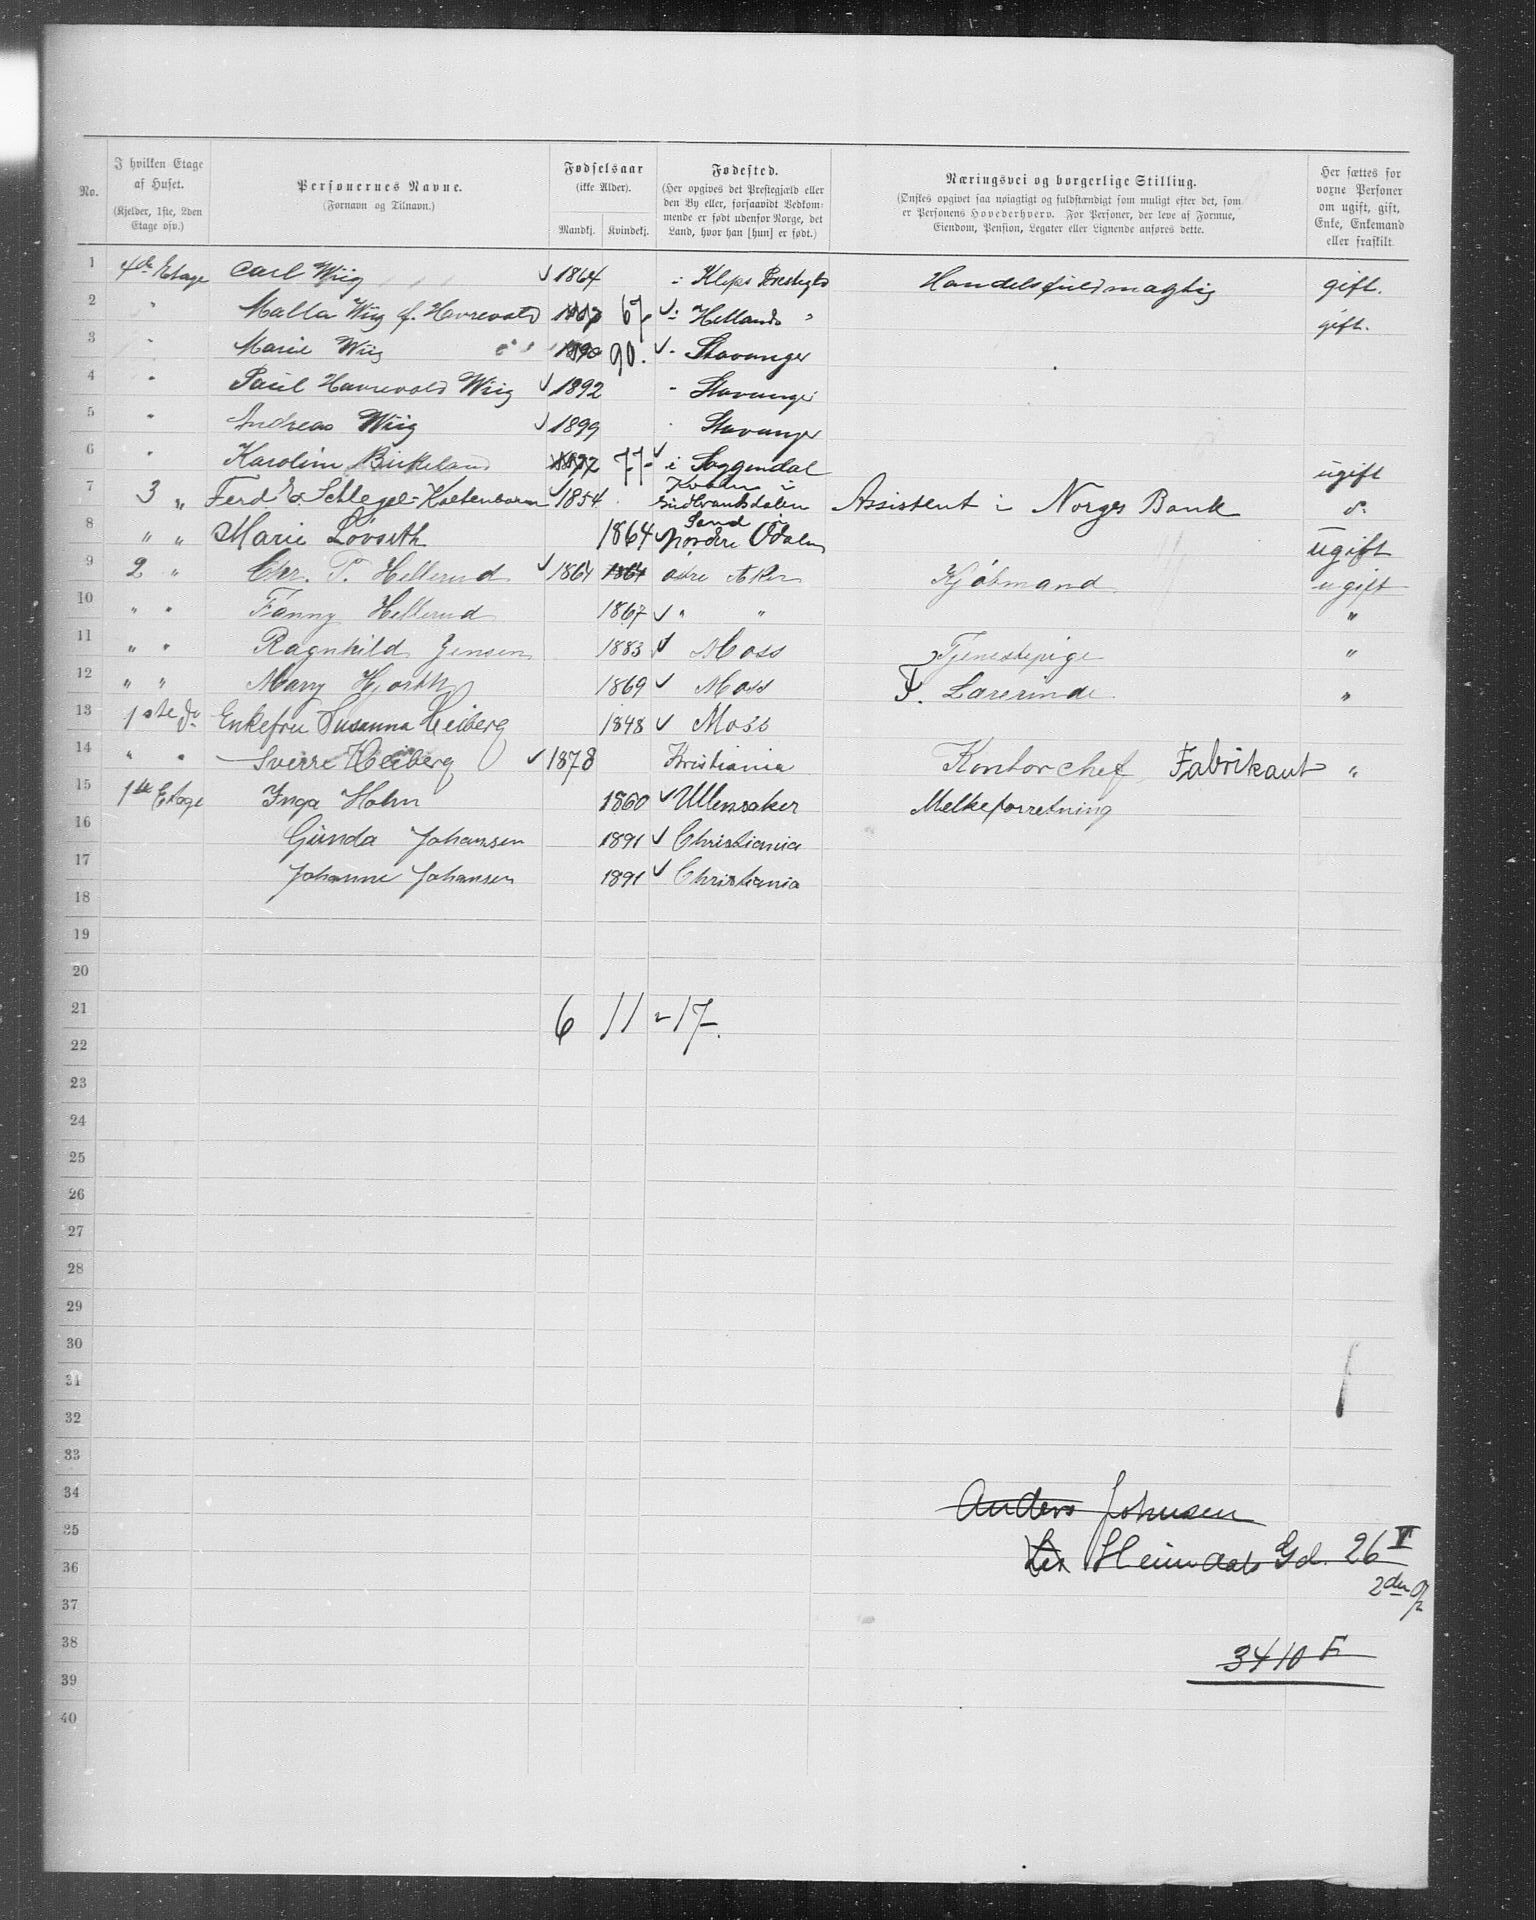 No.
I hvilken Etage af Huset.
(Kjelder, 1ste, 2den Etage osv.)
Personernes Navne.
(Fornavn og Tilnavn.)
Fødselsaar
(ikke Alder).
Mandkj. Kvindekj.
Fødested.
(Her opgives det Præstegjæld eller den By eller, forsaavidt Vedkommende er født udenfor Norge, det Land, hvor han [hun] er født.)
Næringsvei og borgerlige Stilling.
(Ønskes opgivet saa nøiagtigt og fuldstændigt som muligt efter det, som er Personens Hovederhverv. For Personer, der leve af Formue, Eiendom, Pension, Legater eller Lignende anføres dette.
Her sættes for voxne Personer om ugift, gift, Enke, Enkemand eller fraskilt.
1 4de Etage Carl Wiig 1864 i Kleps Prestegld Handelsfuldmægtig gift.
2 " Malla Wiig f. Havrevold 1867 67 i Hellands " gift.
3 " Marie Wiig 1890 90. Stavanger
4 " Paul Havrevold Wiig 1892 Stavanger
5 " Andreas Wiig 1899 Stavanger
6 " Karoline Birkeland 1877 77 i Soggendal ugift
7 3 " Ferd. E. Schlegel-Kaltenborn 1854 Kvam i Gudbrandsdalen Assistent i Norges Bank d.
8 " " Marie Løvseth 1864 Sand i Nordre Odalen ugift
9 2 " Chr. P. Hellerud 1864 1864 østre Aker Kjøbmand ugift
10 " " Fanny Hellerud 1867 " " "
11 " " Ragnhild Jensen 1883 Moss Tjenestepige "
12 " " Mary Hjorth 1869 Moss F. Lærerinde "
13 1ste do Enkefru Susanna Heiberg 1848 Moss
14 " " Sverre Heiberg 1878 Kristiania Kontorchef Fabrikant "
15 1ste Etage Inga Holm 1860 Ullensaker Melkeforretning
16 Gunda Johansen 1891 Christiania
17 Johanne Johansen 1891 Christiania
18
19
20
21 6 11 = 17.
22
23
24
25
26
27
28
29
30
31
32
33
34 Anders Johnsen
35
36 Heimdals Gd. 26 V
37 2den
38
39 3410 F
40